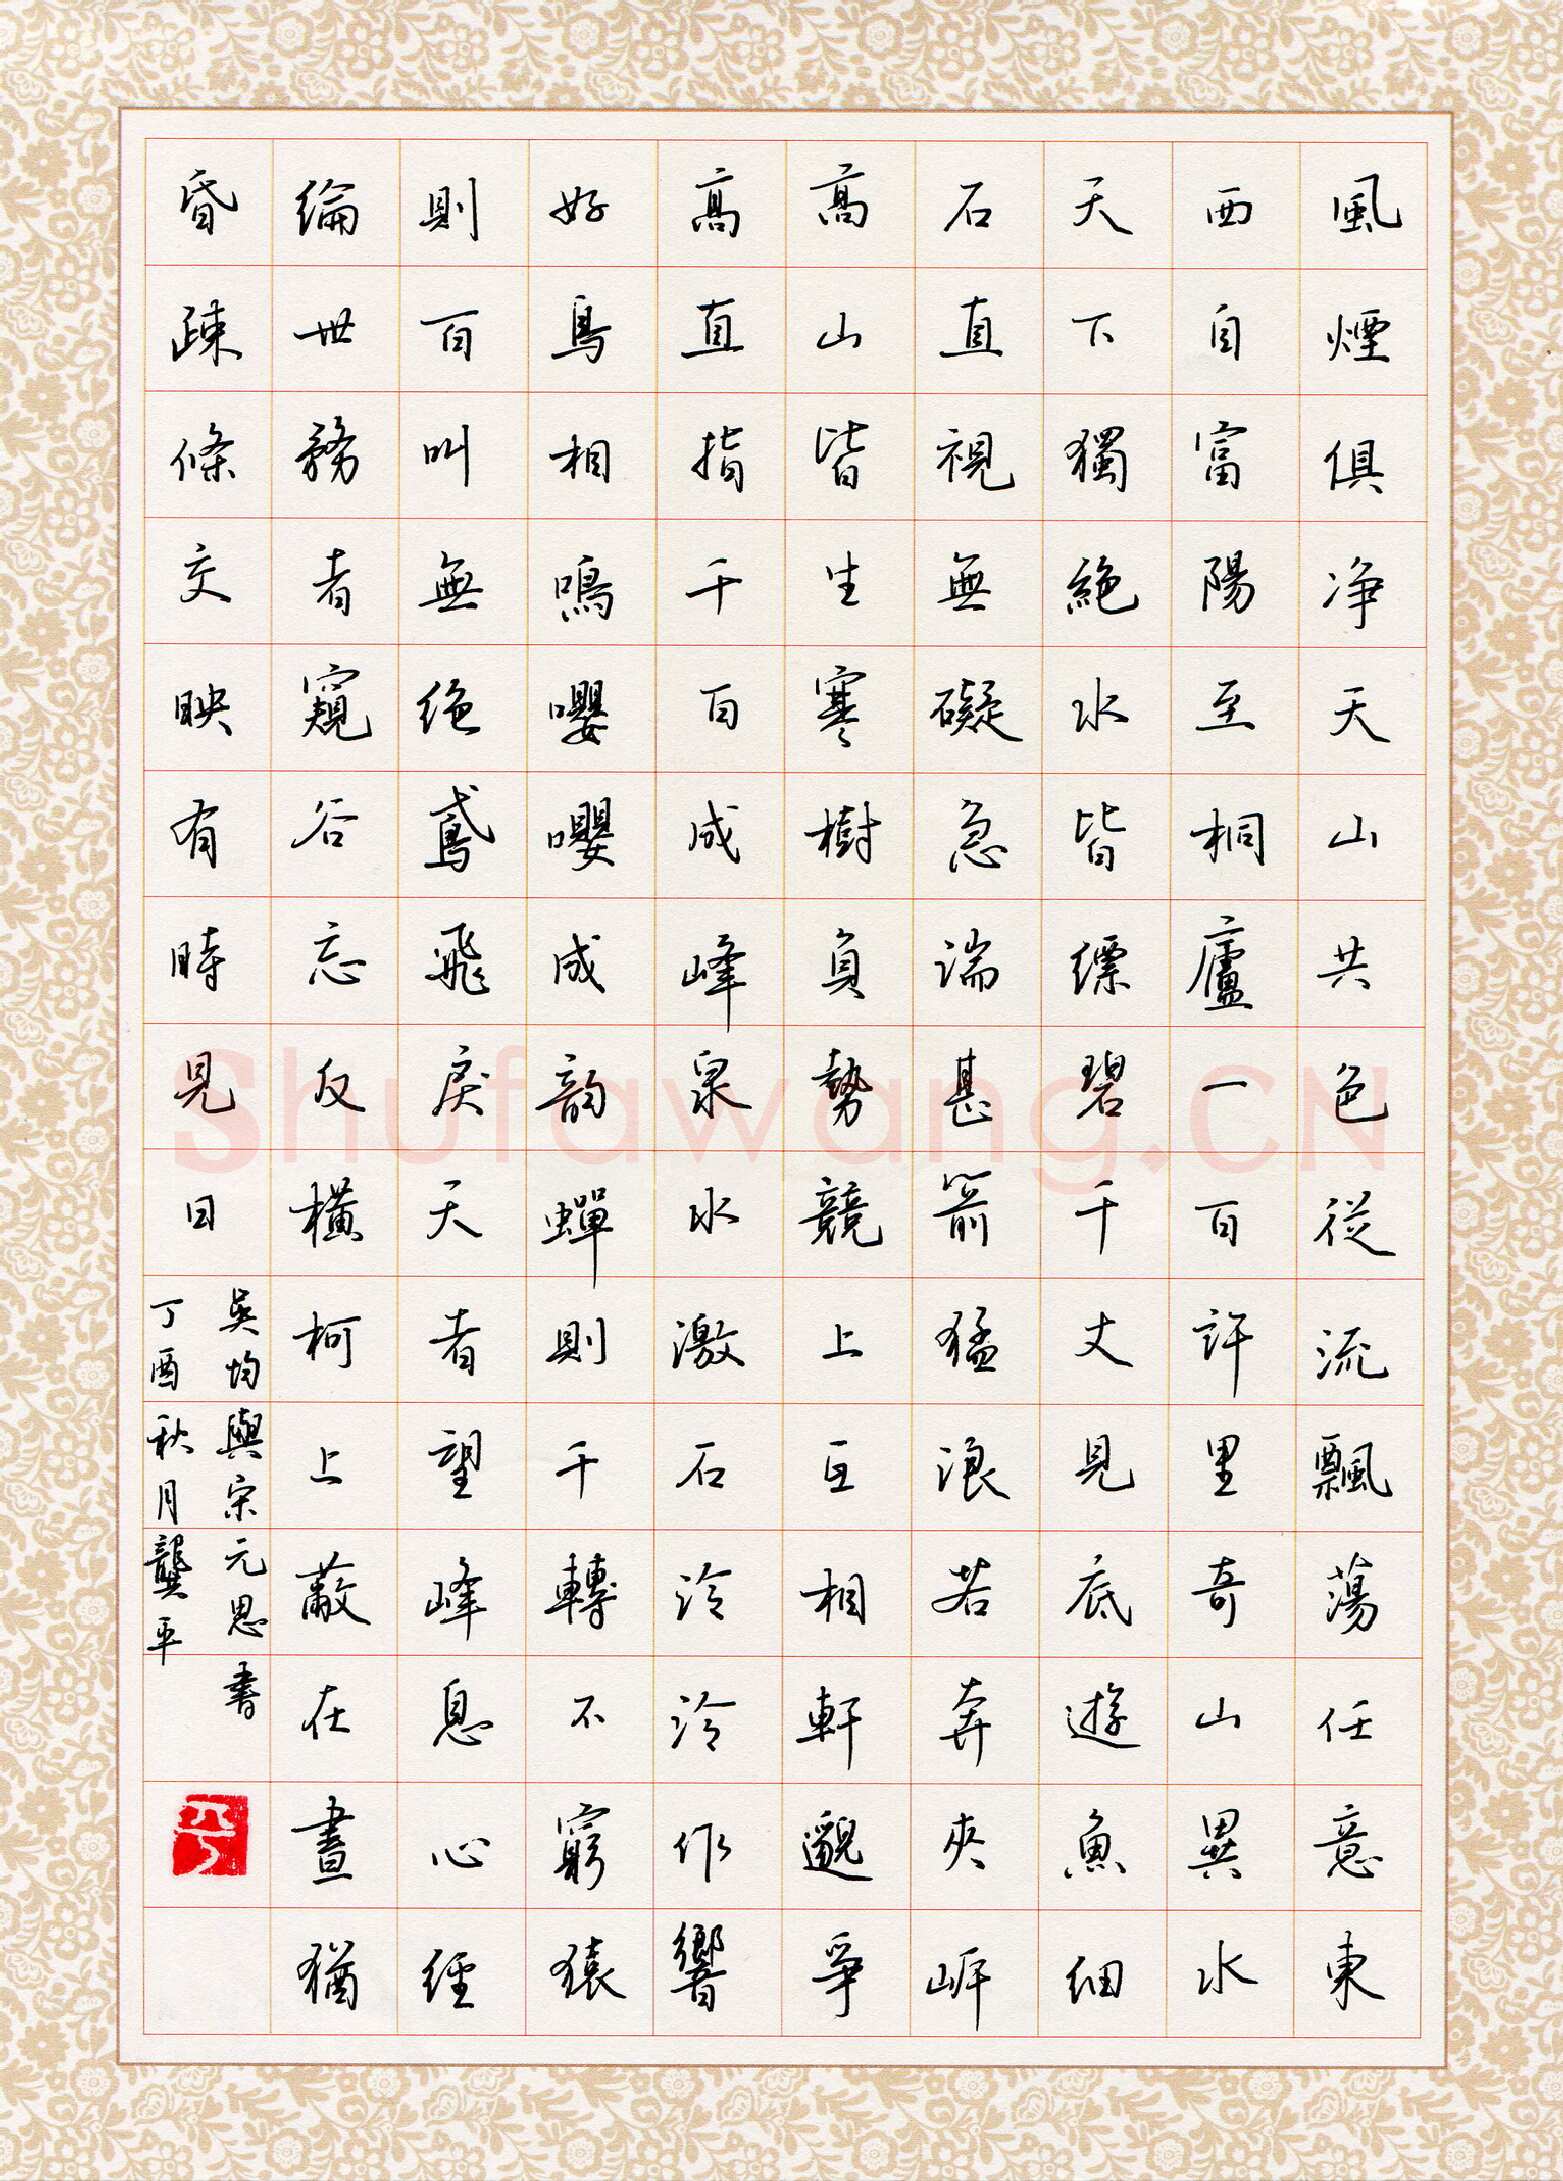 風煙俱净天山共色從流飄蕩任意東
西自富陽至桐廬一百許里奇山異水
天下獨絕水皆縹碧千丈見底遊魚細
石直視無礙急湍甚箭猛浪若奔夾岸
高山皆生寒樹負勢競上互相軒邈爭
高直指千百成峰泉水激石泠泠作響
好鳥相鳴嚶嚶成韵蟬則千轉不窮猿
則百叫無絕鳶飛戾天者望峰息心經
綸世務者窺谷忘反橫柯上蔽在晝猶
昏疎條交映有時見日
吳均與宋元思書
丁酉秋月龔平
Shufawang.CN